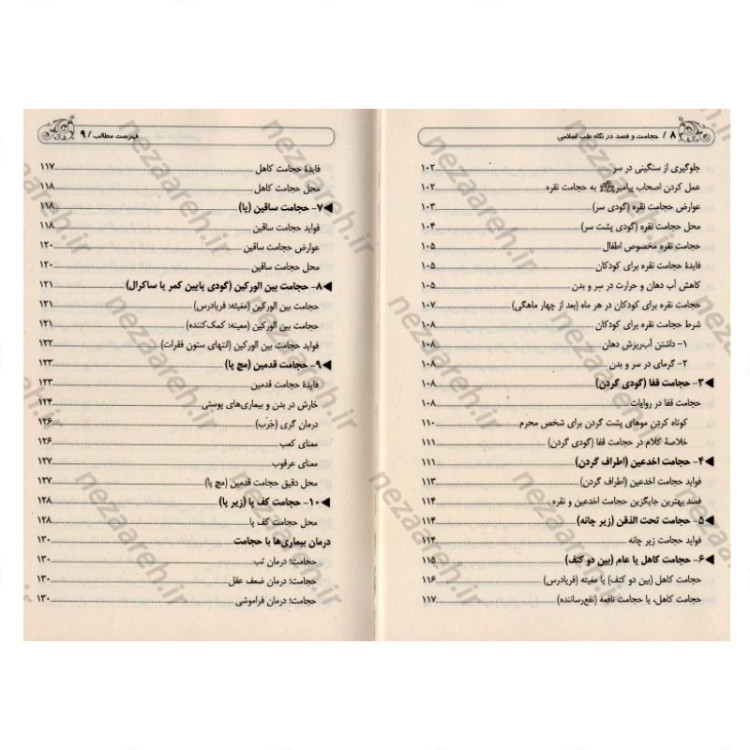 ۸ / حجامت و فصد در نگاه طب اسلامی
جلوگیری از سنگینی در سر ۱۰۲
عمل کردن اصحاب پیامبر ﷺ به حجامت نقره ۱۰۲
عوارض حجامت نقره (گودی سر) ۱۰۳
محل حجامت نقره (گودی پشت سر) ۱۰۴
حجامت نقره مخصوص اطفال ۱۰۵
فایدهٔ حجامت نقره برای کودکان ۱۰۵
کاهش آب دهان و حرارت در سر و بدن ۱۰۵
حجامت نقره برای کودکان در هر ماه (بعد از چهار ماهگی) ۱۰۷
شرط حجامت نقره برای کودکان ۱۰۸
۱- داشتن آب‌ریزش دهان ۱۰۸
۲- گرمای در سر و بدن ۱۰۸
◀۳- حجامت قفا (گودی گردن) ۱۰۸
حجامت قفا در روایات ۱۰۸
کوتاه کردن موهای پشت گردن برای شخص محرم ۱۱۰
خلاصهٔ کلام در حجامت قفا (گودی گردن) ۱۱۰
◀۴- حجامت اخدعین (اطراف گردن) ۱۱۱
فواید حجامت اخدعین (اطراف گردن) ۱۱۱
فصد بهترین جایگزین حجامت اخدعین و نقره ۱۱۴
◀۵- حجامت تحت الذقن (زیر چانه) ۱۱۴
فواید حجامت زیر چانه ۱۱۴
◀۶- حجامت کاهل یا عام (بین دو کتف) ۱۱۵
حجامت کاهل (بین دو کتف) یا مغیثه (فریادرس) ۱۱۶
حجامت کاهل، یا حجامت نافعه (نفع‌رساننده) ۱۱۷
فهرست مطالب / ۹
فایدهٔ حجامت کاهل ۱۱۷
محل حجامت کاهل ۱۱۸
◀۷- حجامت ساقین (پا) ۱۱۸
فواید حجامت ساقین ۱۱۸
عوارض حجامت ساقین ۱۲۰
محل حجامت ساقین ۱۲۰
◀۸- حجامت بین الورکین (گودی پایین کمر یا ساکرال) ۱۲۱
حجامت بین الورکین (مغیثه: فریادرس) ۱۲۱
حجامت بین الورکین (معینه: کمک‌کننده) ۱۲۱
فواید حجامت بین الورکین (انتهای ستون فقرات) ۱۲۲
◀۹- حجامت قدمین (مچ پا) ۱۲۳
فایدهٔ حجامت قدمین ۱۲۳
خارش در بدن و بیماری‌های پوستی ۱۲۴
درمان گری (جَرَب) ۱۲۶
معنای کعب ۱۲۶
معنای عرقوب ۱۲۷
محل دقیق حجامت قدمین (مچ پا) ۱۲۷
◀۱۰- حجامت کف پا (زیر پا) ۱۲۸
محل حجامت کف پا ۱۲۸
درمان بیماری‌ها با حجامت ۱۳۰
حجامت؛ درمان تب ۱۳۰
حجامت؛ درمان ضعف عقل ۱۳۰
حجامت؛ درمان فراموشی ۱۳۰
nezaareh.ir